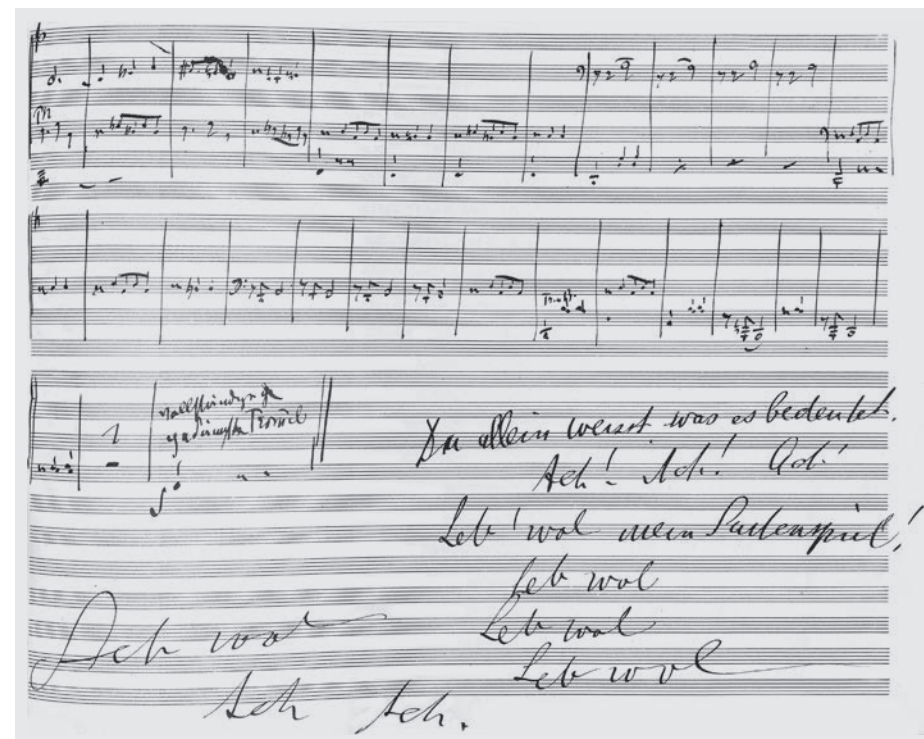 vollständig
gedämpfte Trommel
Du allein weisst was es bedeutet.
Ach! Ach! Ach!
Leb' wol mein Saitenspiel!
Leb wol
Leb wol
Leb wol
Ach wol
Ach Ach.